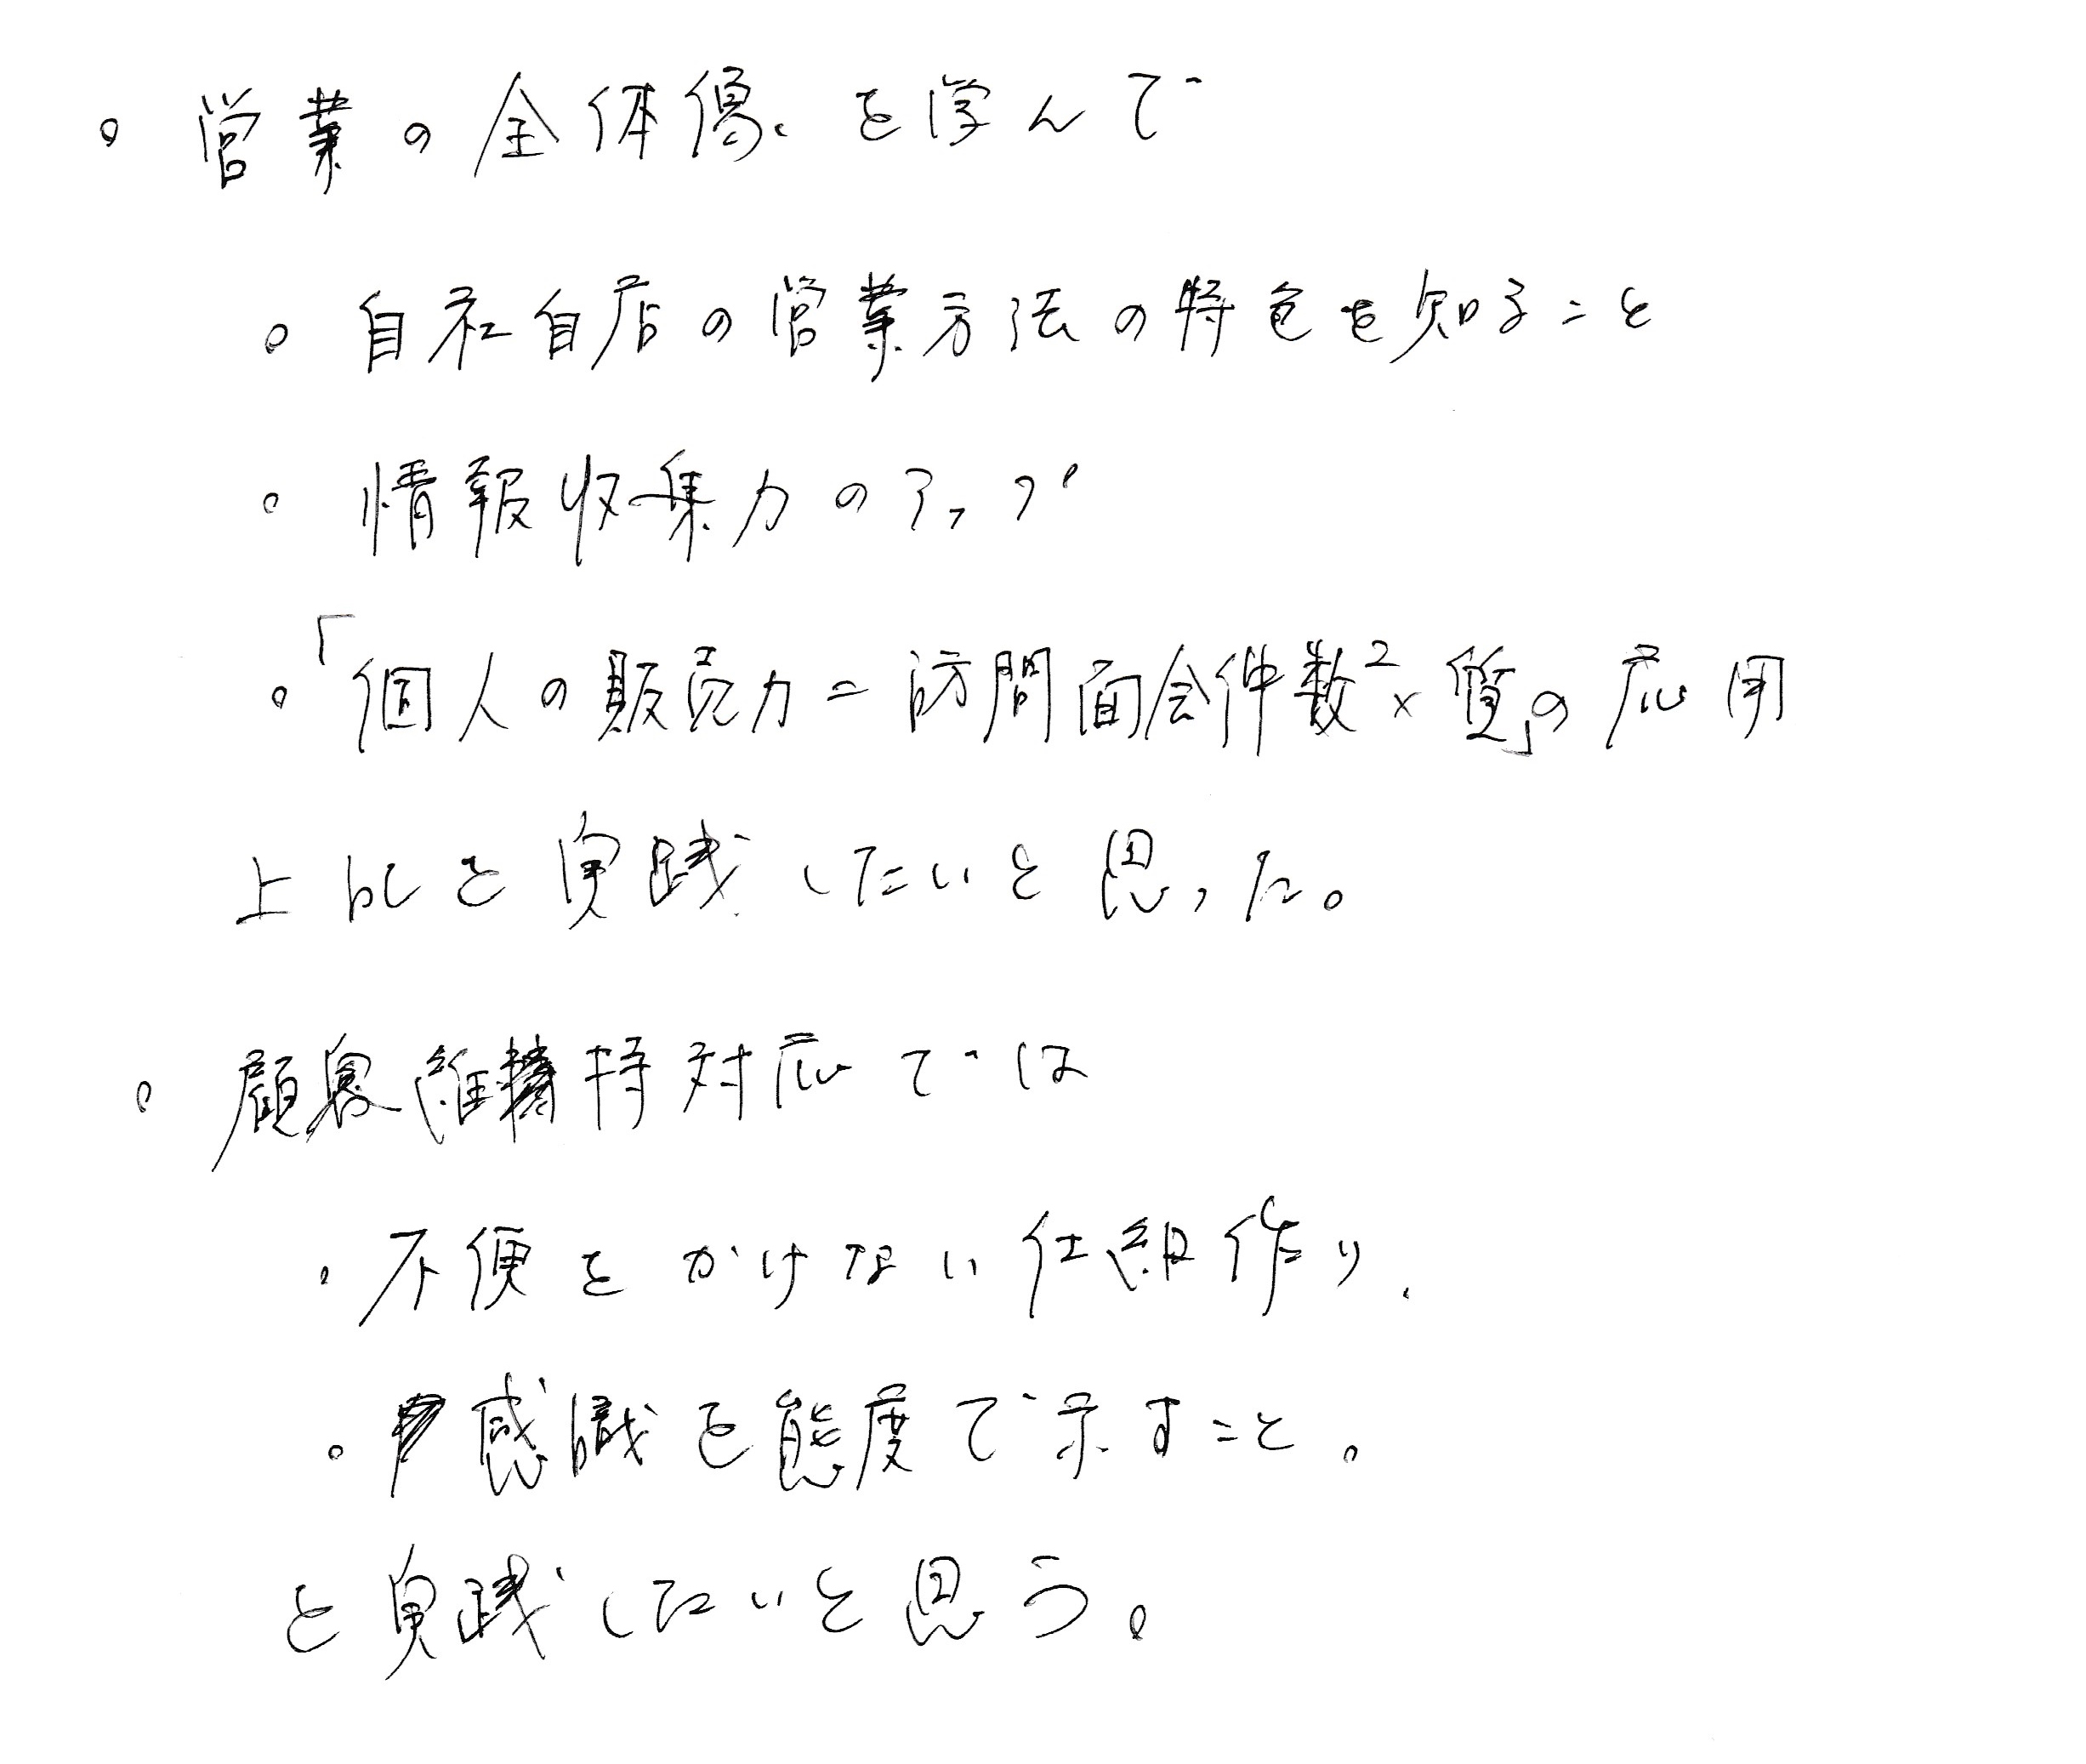 。営業の全体像、を学んで
。自社自店の営業方法の特色を知ること
。情報収集力のアップ
。「個人の販売力=訪問面会件数²×質」の応用
上記を実践したいと思った。
。顧客維持対応では
・不便をかけない仕組作り.
。感識を態度で示すこと。
を実践したいと思う。